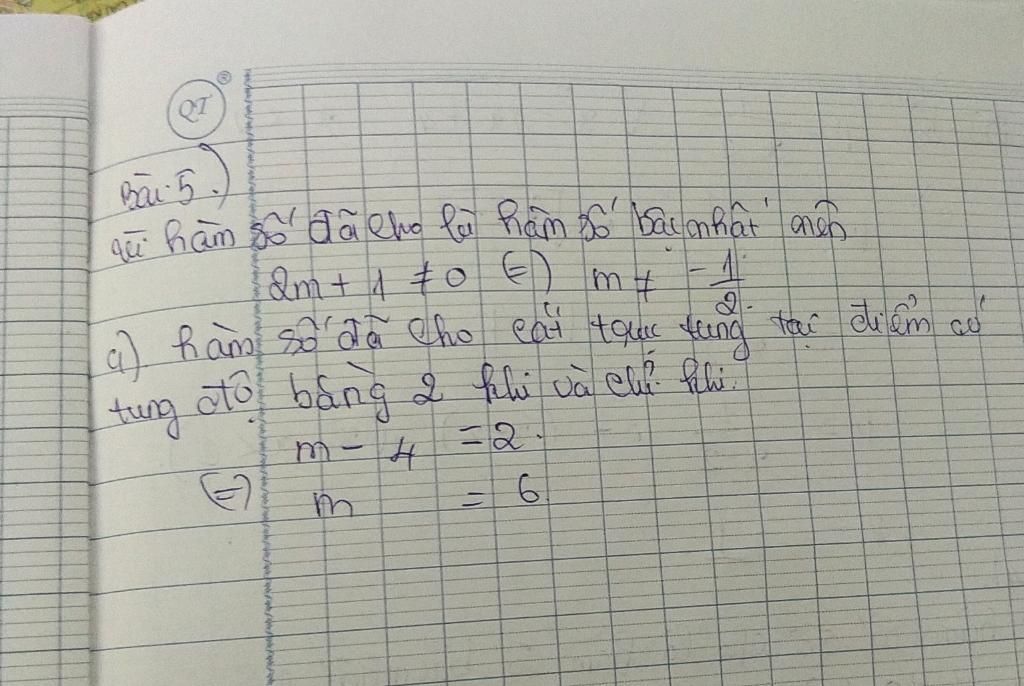 QT
Bài 5.)
vì hàm số đã cho là hàm số bậc nhất nên
2m + 1 ≠ 0 (=) m ≠ -1/2.
a) hàm số đã cho cắt trục tung tại điểm có
tung độ bằng 2 khi và chỉ khi.
m - 4 = 2.
(=) m = 6